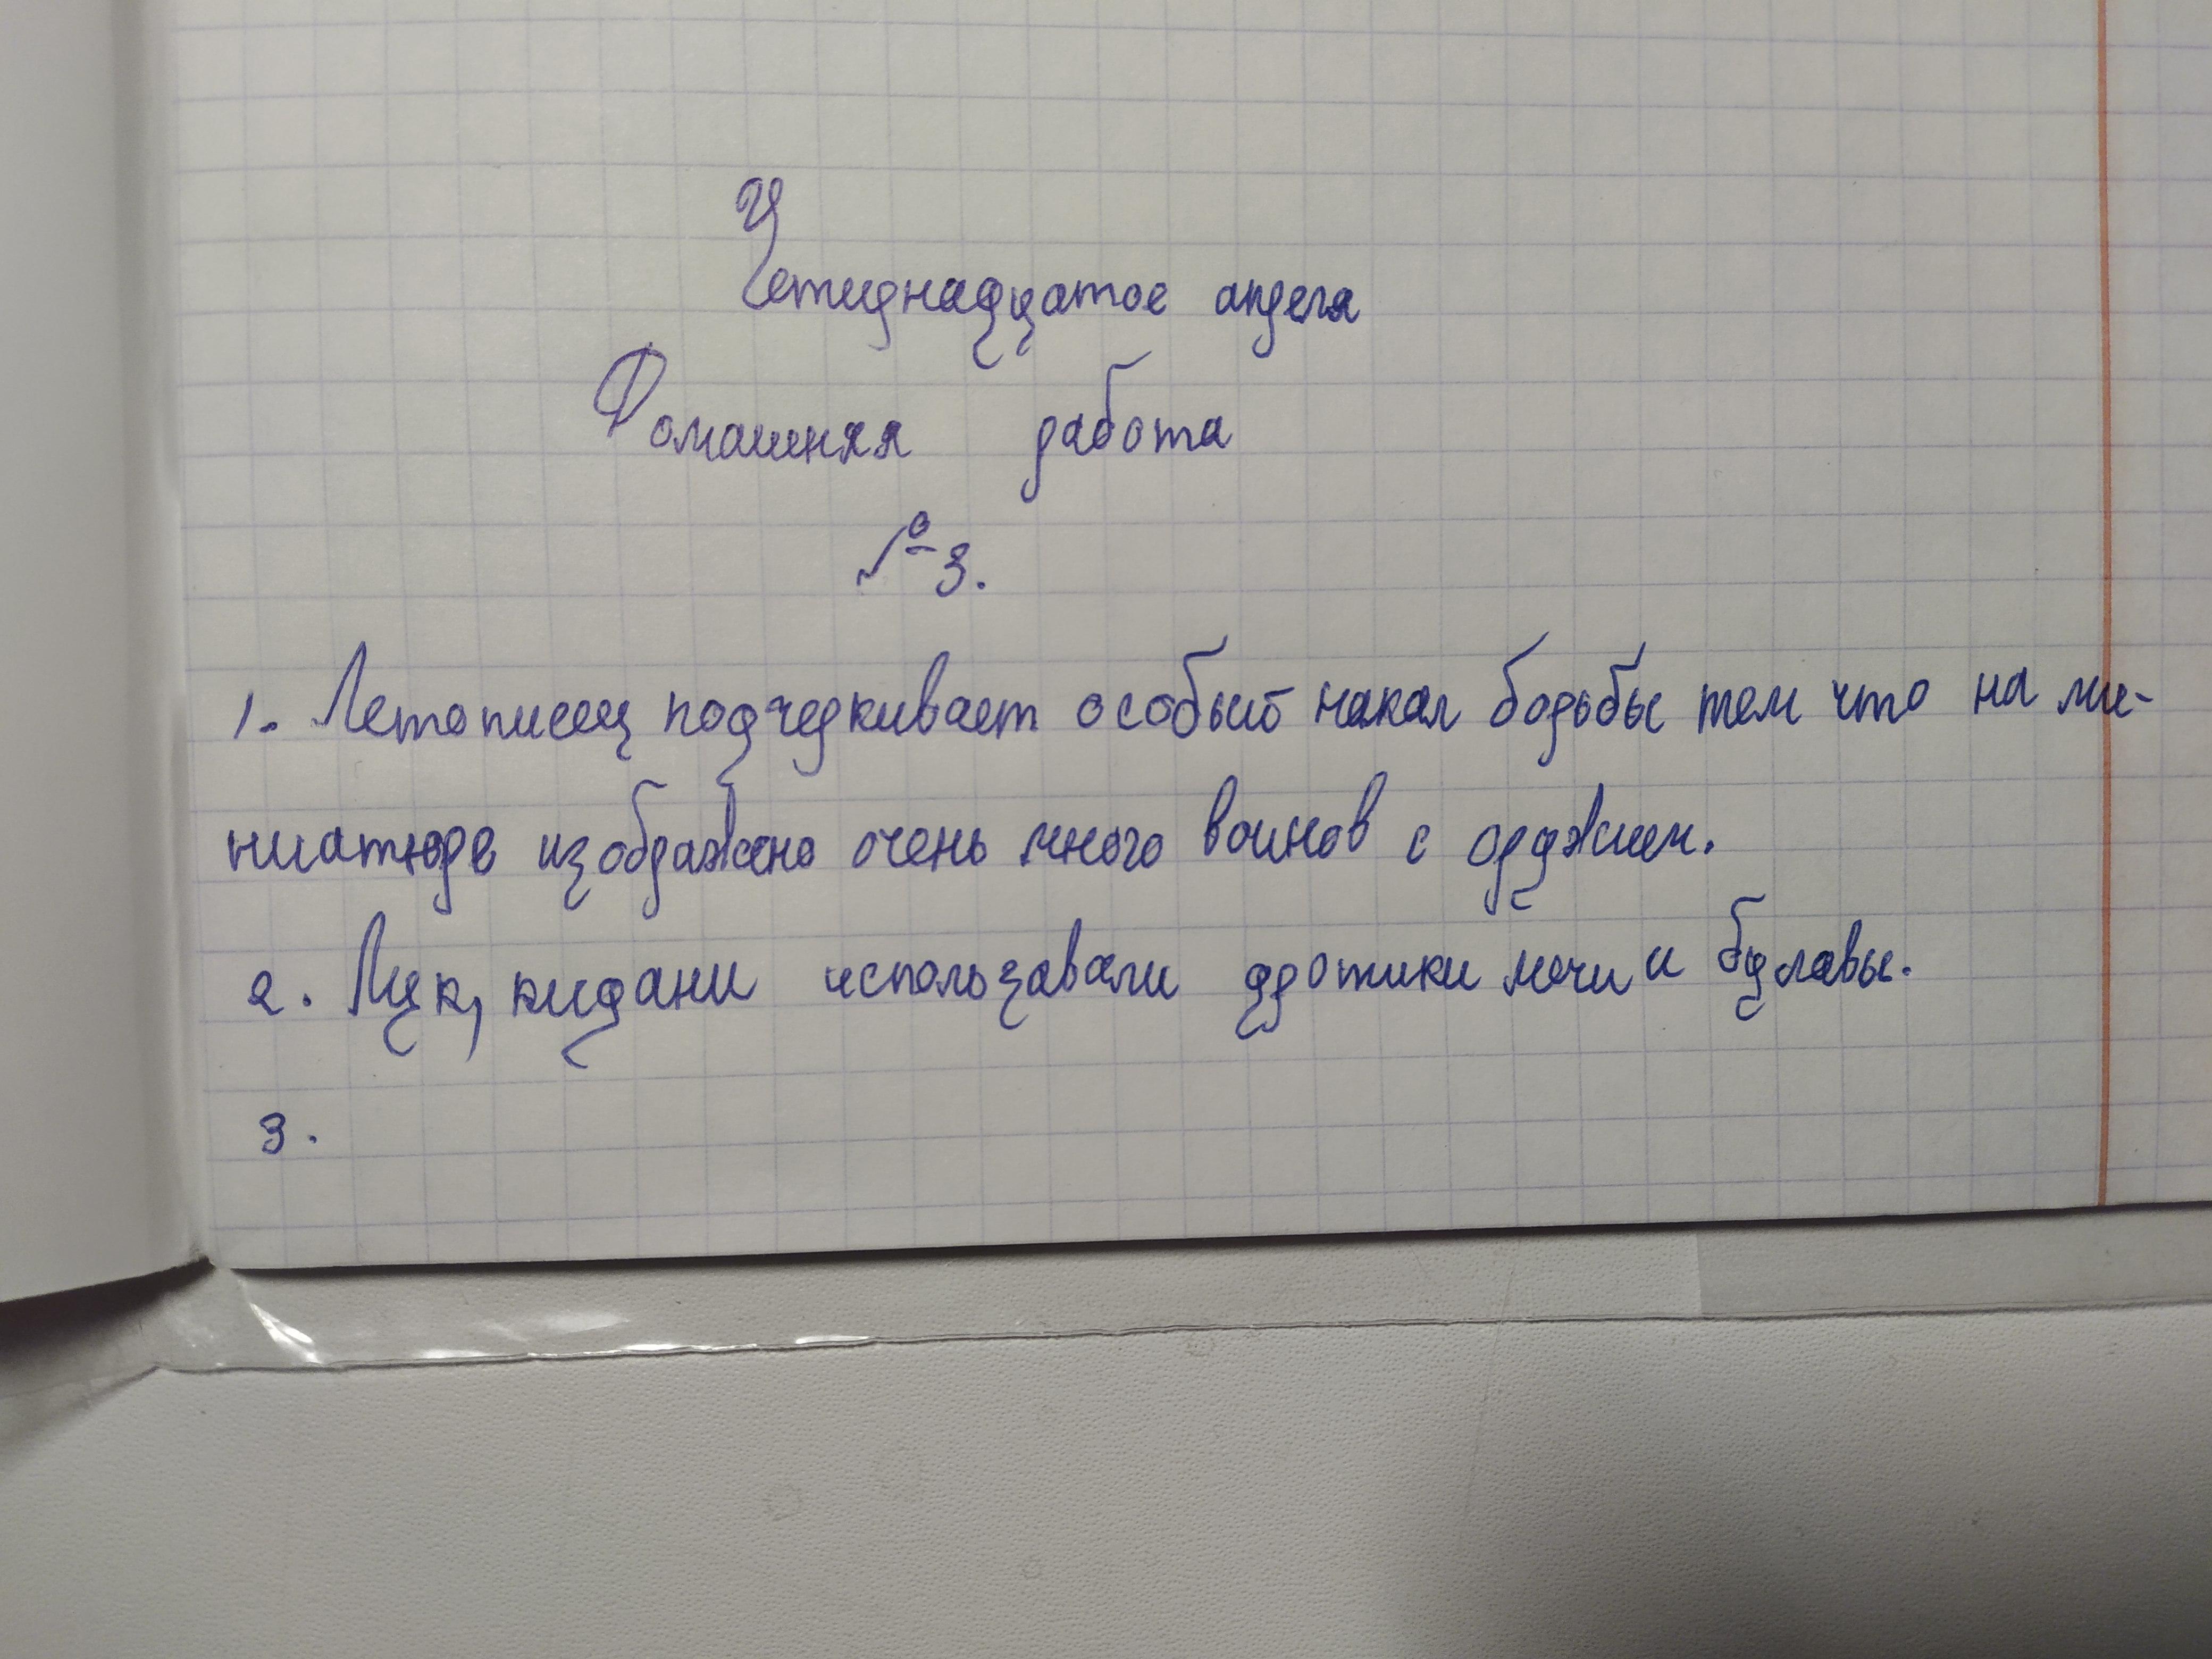 Четырнадцатое апреля
Домашняя работа
№3.
1. Летописец подчеркивает особый накал борьбы тем что на ми-
ниатюре изображено очень много воинов с оружием.
2. Лук, кидани использавали дротики мечи и булавы.
3.